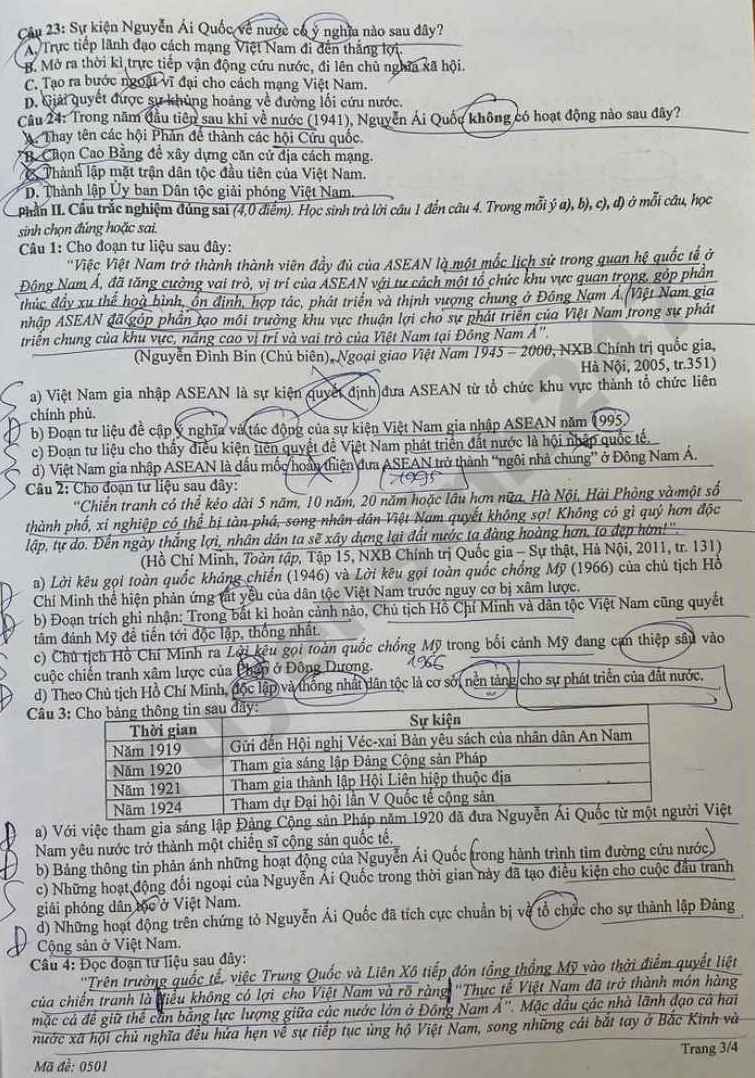 Câu 23: Sự kiện Nguyễn Ái Quốc về nước có ý nghĩa nào sau đây?
A. Trực tiếp lãnh đạo cách mạng Việt Nam đi đến thắng lợi.
B. Mở ra thời kì trực tiếp vận động cứu nước, đi lên chủ nghĩa xã hội.
C. Tạo ra bước ngoặt vĩ đại cho cách mạng Việt Nam.
D. Giải quyết được sự khủng hoảng về đường lối cứu nước.
Câu 24: Trong năm đầu tiên sau khi về nước (1941), Nguyễn Ái Quốc không có hoạt động nào sau đây?
A. Thay tên các hội Phản đế thành các hội Cứu quốc.
B. Chọn Cao Bằng để xây dựng căn cứ địa cách mạng.
C. Thành lập mặt trận dân tộc đầu tiên của Việt Nam.
D. Thành lập Ủy ban Dân tộc giải phóng Việt Nam.
Phần II. Câu trắc nghiệm đúng sai (4,0 điểm). Học sinh trả lời câu 1 đến câu 4. Trong mỗi ý a), b), c), d) ở mỗi câu, học
sinh chọn đúng hoặc sai.
Câu 1: Cho đoạn tư liệu sau đây:
"Việc Việt Nam trở thành thành viên đầy đủ của ASEAN là một mốc lịch sử trong quan hệ quốc tế ở
Đông Nam Á, đã tăng cường vai trò, vị trí của ASEAN với tư cách một tổ chức khu vực quan trọng, góp phần
thúc đẩy xu thế hoà bình, ổn định, hợp tác, phát triển và thịnh vượng chung ở Đông Nam Á. Việt Nam gia
nhập ASEAN đã góp phần tạo môi trường khu vực thuận lợi cho sự phát triển của Việt Nam trong sự phát
triển chung của khu vực, nâng cao vị trí và vai trò của Việt Nam tại Đông Nam Á".
(Nguyễn Đình Bin (Chủ biên), Ngoại giao Việt Nam 1945 – 2000, NXB Chính trị quốc gia,
Hà Nội, 2005, tr.351)
a) Việt Nam gia nhập ASEAN là sự kiện quyết định đưa ASEAN từ tổ chức khu vực thành tổ chức liên
chính phủ.
b) Đoạn tư liệu đề cập ý nghĩa và tác động của sự kiện Việt Nam gia nhập ASEAN năm 1995.
c) Đoạn tư liệu cho thấy điều kiện tiên quyết để Việt Nam phát triển đất nước là hội nhập quốc tế.
d) Việt Nam gia nhập ASEAN là dấu mốc hoàn thiện đưa ASEAN trở thành "ngôi nhà chung" ở Đông Nam Á.
1995
Câu 2: Cho đoạn tư liệu sau đây:
"Chiến tranh có thể kéo dài 5 năm, 10 năm, 20 năm hoặc lâu hơn nữa. Hà Nội, Hải Phòng và một số
thành phố, xí nghiệp có thể bị tàn phá, song nhân dân Việt Nam quyết không sợ! Không có gì quý hơn độc
lập, tự do. Đến ngày thắng lợi, nhân dân ta sẽ xây dựng lại đất nước ta đàng hoàng hơn, to đẹp hơn!".
(Hồ Chí Minh, Toàn tập, Tập 15, NXB Chính trị Quốc gia – Sự thật, Hà Nội, 2011, tr. 131)
a) Lời kêu gọi toàn quốc kháng chiến (1946) và Lời kêu gọi toàn quốc chống Mỹ (1966) của chủ tịch Hồ
Chí Minh thể hiện phản ứng tất yếu của dân tộc Việt Nam trước nguy cơ bị xâm lược.
b) Đoạn trích ghi nhận: Trong bất kì hoàn cảnh nào, Chủ tịch Hồ Chí Minh và dân tộc Việt Nam cũng quyết
tâm đánh Mỹ để tiến tới độc lập, thống nhất.
c) Chủ tịch Hồ Chí Minh ra Lời kêu gọi toàn quốc chống Mỹ trong bối cảnh Mỹ đang can thiệp sâu vào
cuộc chiến tranh xâm lược của Pháp ở Đông Dương.
1966
d) Theo Chủ tịch Hồ Chí Minh, độc lập và thống nhất dân tộc là cơ sở, nền tảng cho sự phát triển của đất nước.
Câu 3: Cho bảng thông tin sau đây:
Thời gian Sự kiện
Năm 1919 Gửi đến Hội nghị Véc-xai Bản yêu sách của nhân dân An Nam
Năm 1920 Tham gia sáng lập Đảng Cộng sản Pháp
Năm 1921 Tham gia thành lập Hội Liên hiệp thuộc địa
Năm 1924 Tham dự Đại hội lần V Quốc tế cộng sản
a) Với việc tham gia sáng lập Đảng Cộng sản Pháp năm 1920 đã đưa Nguyễn Ái Quốc từ một người Việt
Nam yêu nước trở thành một chiến sĩ cộng sản quốc tế.
b) Bảng thông tin phản ánh những hoạt động của Nguyễn Ái Quốc trong hành trình tìm đường cứu nước.
c) Những hoạt động đối ngoại của Nguyễn Ái Quốc trong thời gian này đã tạo điều kiện cho cuộc đấu tranh
giải phóng dân tộc ở Việt Nam.
d) Những hoạt động trên chứng tỏ Nguyễn Ái Quốc đã tích cực chuẩn bị về tổ chức cho sự thành lập Đảng
Cộng sản ở Việt Nam.
Câu 4: Đọc đoạn tư liệu sau đây:
"Trên trường quốc tế, việc Trung Quốc và Liên Xô tiếp đón tổng thống Mỹ vào thời điểm quyết liệt
của chiến tranh là điều không có lợi cho Việt Nam và rõ ràng "Thực tế Việt Nam đã trở thành món hàng
mặc cả để giữ thế cân bằng lực lượng giữa các nước lớn ở Đông Nam Á". Mặc dầu các nhà lãnh đạo cả hai
nước xã hội chủ nghĩa đều hứa hẹn về sự tiếp tục ủng hộ Việt Nam, song những cái bắt tay ở Bắc Kinh và
Trang 3/4
Mã đề: 0501